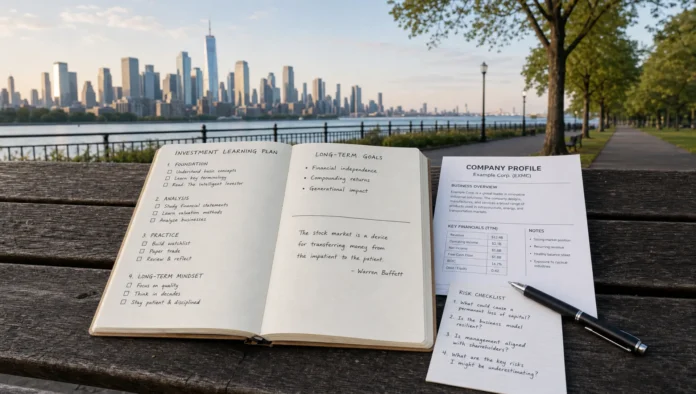 INVESTMENT LEARNING PLAN
1. FOUNDATION
Understand basic concepts
Learn key terminology
Read: The Intelligent Investor
2. ANALYSIS
Study financial statements
Learn valuation methods
Analyze businesses
3. PRACTICE
Build watchlist
Paper trade
Review & reflect
4. LONG-TERM MINDSET
Focus on quality
Think in decades
Stay patient & disciplined
LONG-TERM GOALS
• Financial independence
• Compounding returns
• Generational impact
The stock market is a device
for transferring money from
the impatient to the patient.
- Warren Buffett
COMPANY PROFILE
Example Corp. (EXMC)
BUSINESS OVERVIEW
KEY FINANCIALS (TTM)
NOTES
RISK CHECKLIST
1. What could cause a
permanent loss of capital?
2. Is the business model
resilient?
3. Is management aligned
with shareholders?
4. What are the key risks
I might be underestimating?